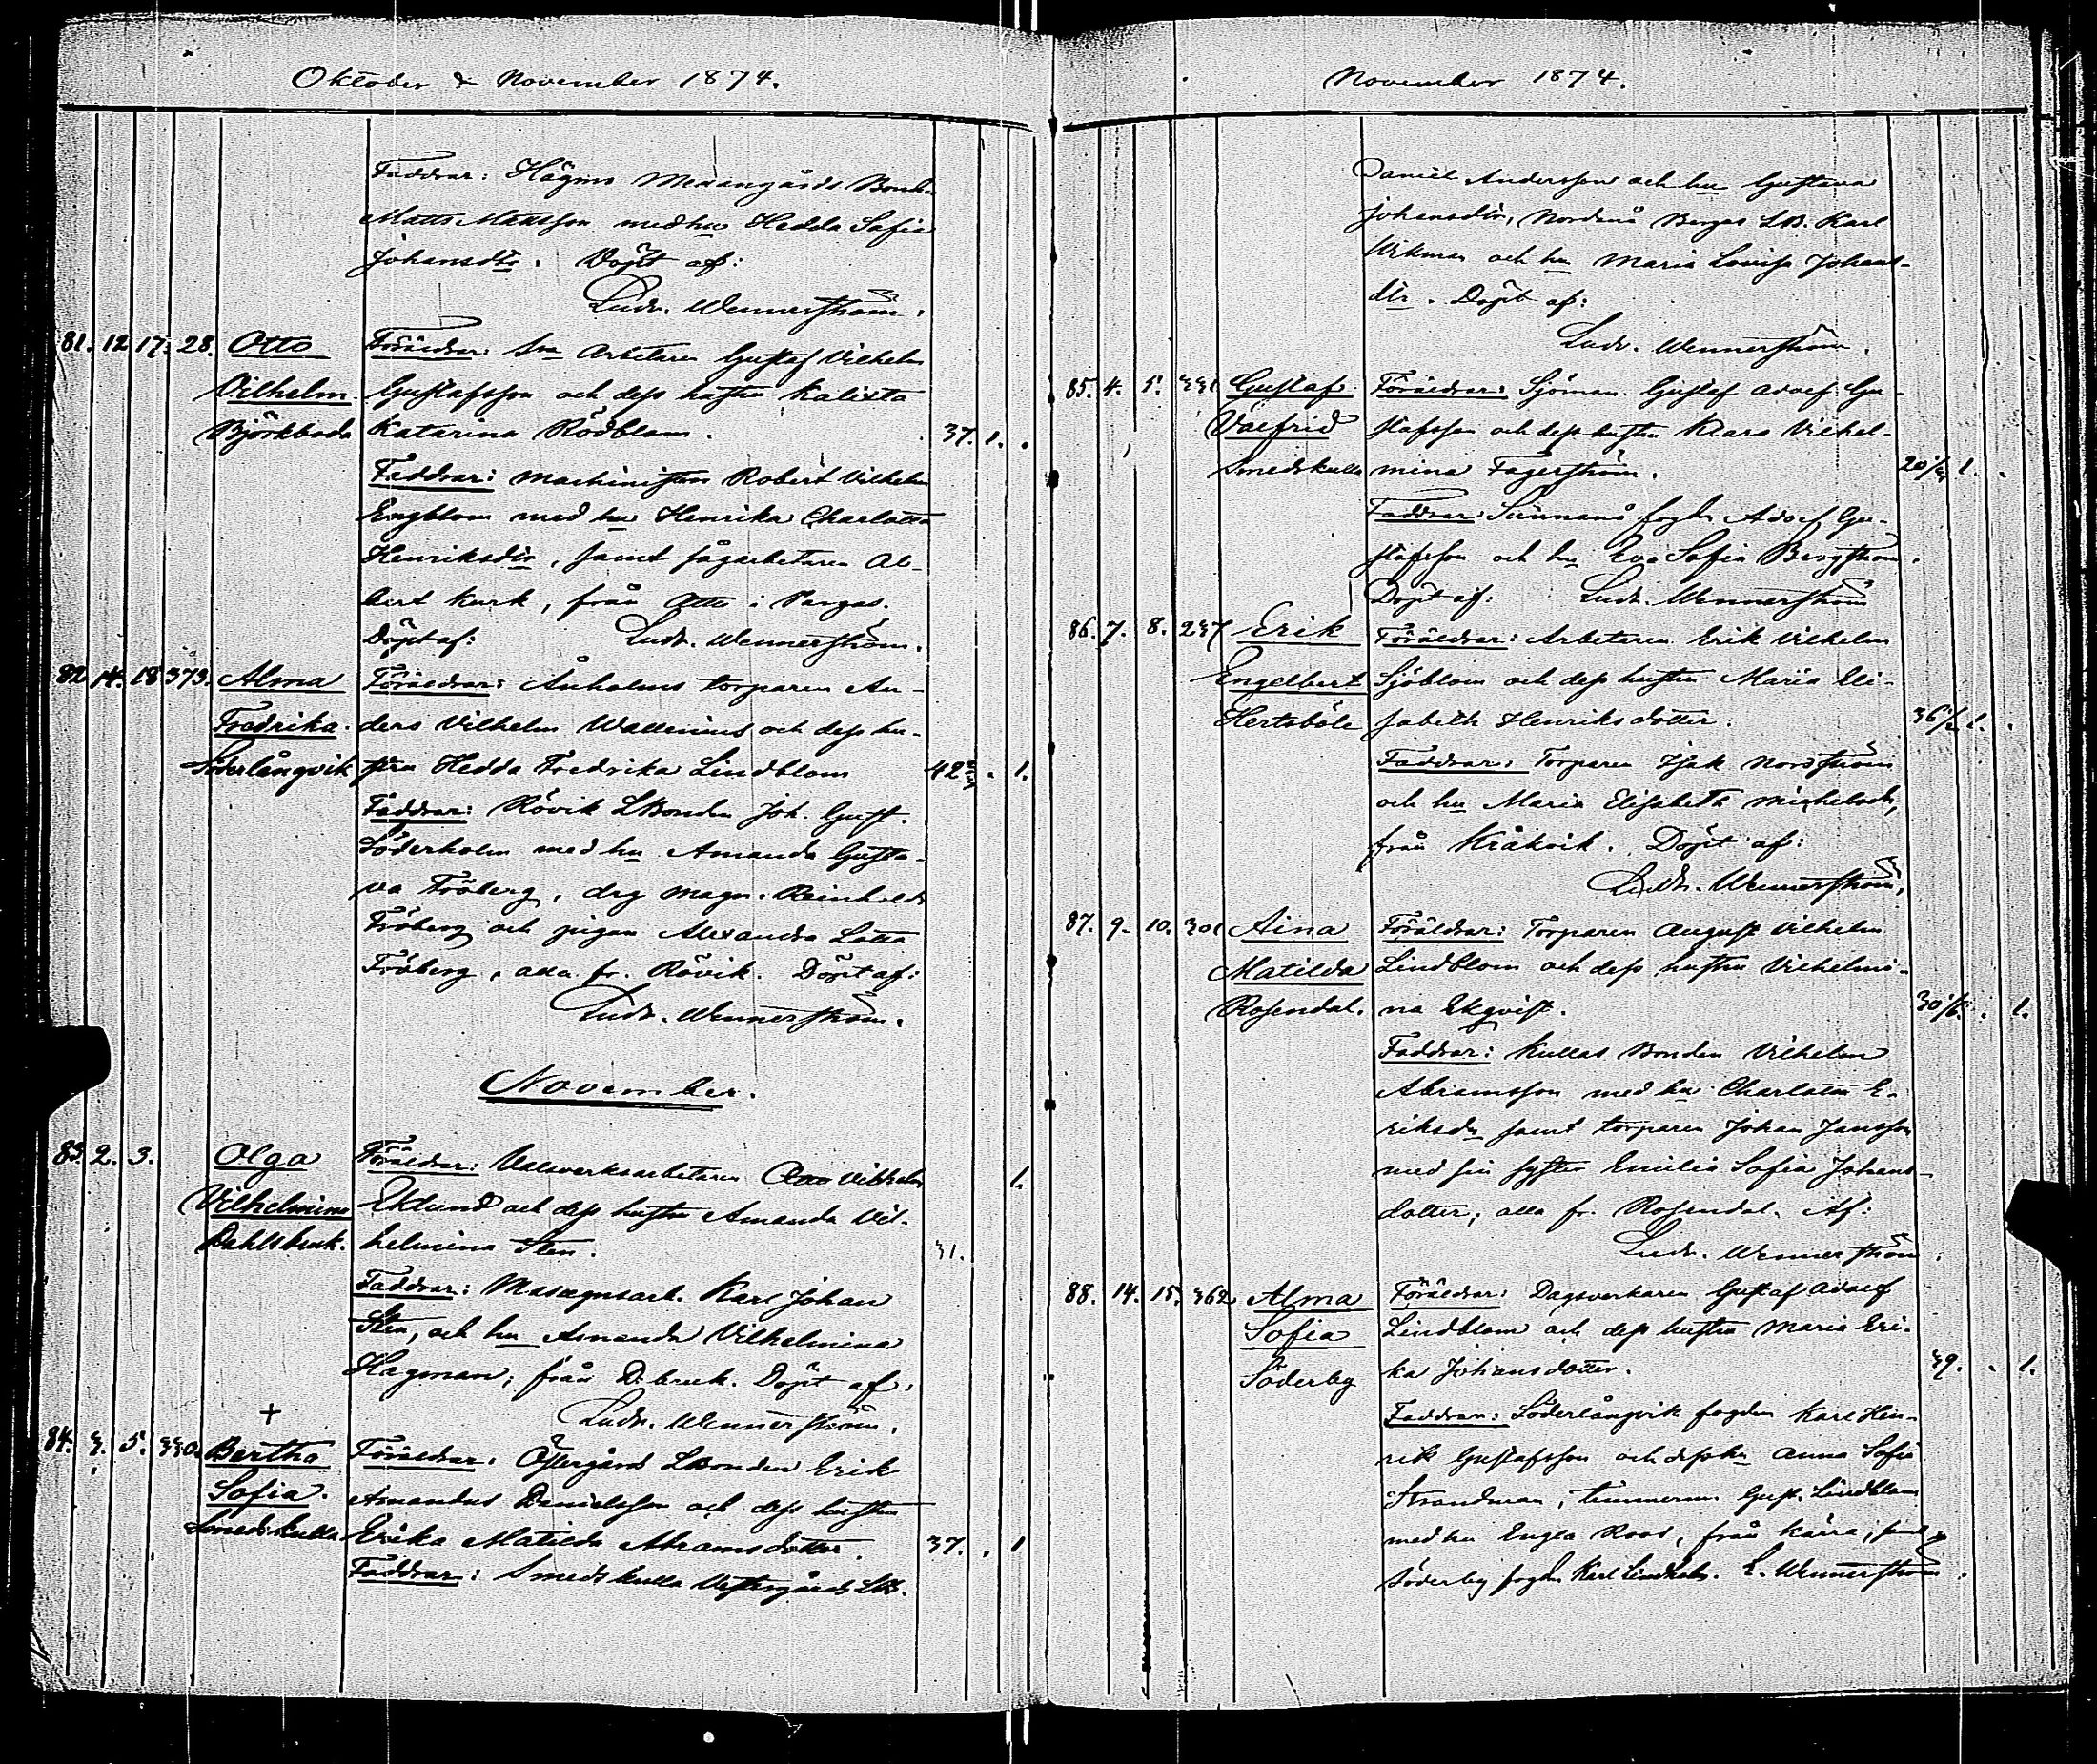 Oktober & November 1874.
Faddrar: Högmo Mellangårds Bonden
Matts Mattsson med hu Hedda Sofia
Johansdtr. Döpt af:
Ludv. Wennerström.
81. 12. 17. 28. Otto Föräldrar: Arbetaren Gustaf Vilhelm
Vilhelm Gustafsson och dess hustru Kalixta
Björkboda Katarina Rödblom. 37. 1.
Faddrar: Machinisten Robert Vilhelm
Engblom med hu Henrika Charlotta
Henriksdtr, samt sågarbetaren Al-
bert Kurk, från Atto i Pargas.
Döpt af: Ludv. Wennerström.
82. 14. 18. 373. Alma Föräldrar: Ånholms torparen An-
Fredrika. ders Vilhelm Wallenius och dess hu-
Söderlångvik stru Hedda Fredrika Lindblom 42 . 1.
Faddrar: Rövik LBonden Joh. Gust.
Söderholm med hu Amanda Gusta-
va Fröberg, drg Magn. Reinhold
Fröberg och pigan Alexandra Lotta
Fröberg, alla fr. Rövik. Döpt af:
Ludv. Wennerström.
November.
83. 2. 3. Olga Föräldrar: Valsverksarbetaren Otto Vilhelm 1.
Vilhelmina Eklund och dess hustru Amanda Vil-
Dahlsbruk. helmina Sten. 31.
Faddrar: Masugnsarb. Karl Johan
Sten, och hu Amanda Vilhelmina
Hagman, från D.bruk. Döpt af:
+ Ludv. Wennerström.
84. 3. 5. 330. Bertha Föräldrar: Östergård LBonden Erik
Sofia. Amandus Danielsson och dess hustru
Smedskulla Erika Matilda Abramsdotter. 37. . 1
Faddrar: Smedskulla Vestergårds LB.
November 1874.
Daniel Andersson och hu Gustava
Johansdtr, Nordanå Berges LB. Karl
Wikman och hu Maria Lovisa Johans-
dtr. Döpt af:
Ludv. Wennerström.
85. 4. 5. 331 Gustaf Föräldrar: Sjöman Gustaf Adolf Gu-
Valfrid stafsson och dess hustru Klara Vilhel-
Smedskulla mina Fagerström. 20 1.
Faddrar: Sunnanå fogden Adolf Gu-
stafsson och hu Eva Sofia Bergström.
Döpt af: Ludv. Wennerström
86. 7. 8. 237 Erik Föräldrar: Arbetaren Erik Vilhelm
Engelbert Sjöblom och dess hustru Maria Eli-
Hertsböle sabeth Henriksdotter. 36 1/2 1.
Faddrar: Torparen Isak Nordström
och hu Maria Elisabeth Michelsdr,
från Kråkvik. Döpt af:
Ludv. Wennerström.
87. 9. 10. 301 Aina Föräldrar: Torparen August Vilhelm
Matilda Lindblom och dess hustru Vilhelmi-
Rosendal. na Ekqvist. 30 . 1.
Faddrar: Kullas Bonden Vilhelm
Abramsson med hu Charlotta E-
riksdr samt torparen Johan Jansson
med sin syster Emilia Sofia Johans-
dotter, alla fr. Rosendal. Af:
Ludv. Wennerström.
88. 14. 15. 362 Alma Föräldrar: Dagsverkaren Gustaf Adolf
Sofia Lindblom och dess hustru Maria Eri-
Söderby ka Johansdotter. 39. . 1.
Faddrar: Söderlångvik fogden Karl Hen-
rik Gustafsson och dess hu Anna Sofia
Strandman, timmerm. Gust. Lindblom
med hu Engla Roos, från Kärra, samt
Söderby fogden Karl Lindholm. L. Wennerström.